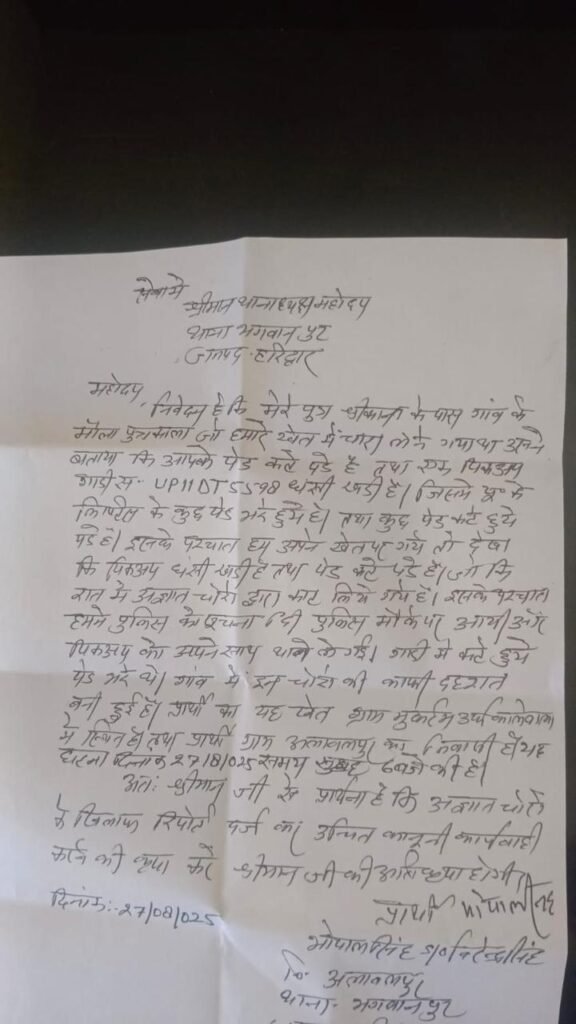 सेवा में
श्रीमान थानाध्यक्ष महोदय
थाना भगवानपुर
जनपद-हरिद्वार
महोदय,
निवेदन है कि मेरे पुत्र श्रीकान्त के पास गांव के
मौला पुत्र काला जो हमारे खेत में चारा लेने गया था उसने
बताया कि आपके पेड कटे पडे है तथा एक पिकअप
गाडी स॰ UP11DT5598 धंसी खडी है। जिसमे के
लिपटिस के कुछ पेड भरे हुये है। तथा कुछ पेड कटे हुये
पडे है। इसके पश्चात हम अपने खेत पर गये तो देखा
कि पिकअप धंसी खडी है तथा पेड कटे पडे है। जो कि
रात में अज्ञात चोरो द्वारा काट लिये गये है। इसके पश्चात
हमने पुलिस को सूचना दी पुलिस मौके पर आयी और
पिकअप को अपने साथ थाने ले गई। गाडी में कटे हुये
पेड भरे थे। गांव में इन चोरो की काफी दहशत
बनी हुई है। प्रार्थी का यह खेत ग्राम उर्फ
में स्थित है। तथा प्रार्थी ग्राम अलावलपुर का निवासी है। यह
घटना दिनांक 27/8/025 समय सुबह 6 बजे की है।
अतः श्रीमान जी से प्रार्थना है कि अज्ञात चोरो
के खिलाफ रिपोर्ट दर्ज कर उचित कानूनी कार्यवाही
करने की कृपा करे श्रीमान जी की अति कृपा होगी।
दिनांक:-27/08/025
प्रार्थी
गोपाल सिंह S/O सिंह
नि- अलावलपुर
थाना- भगवानपुर